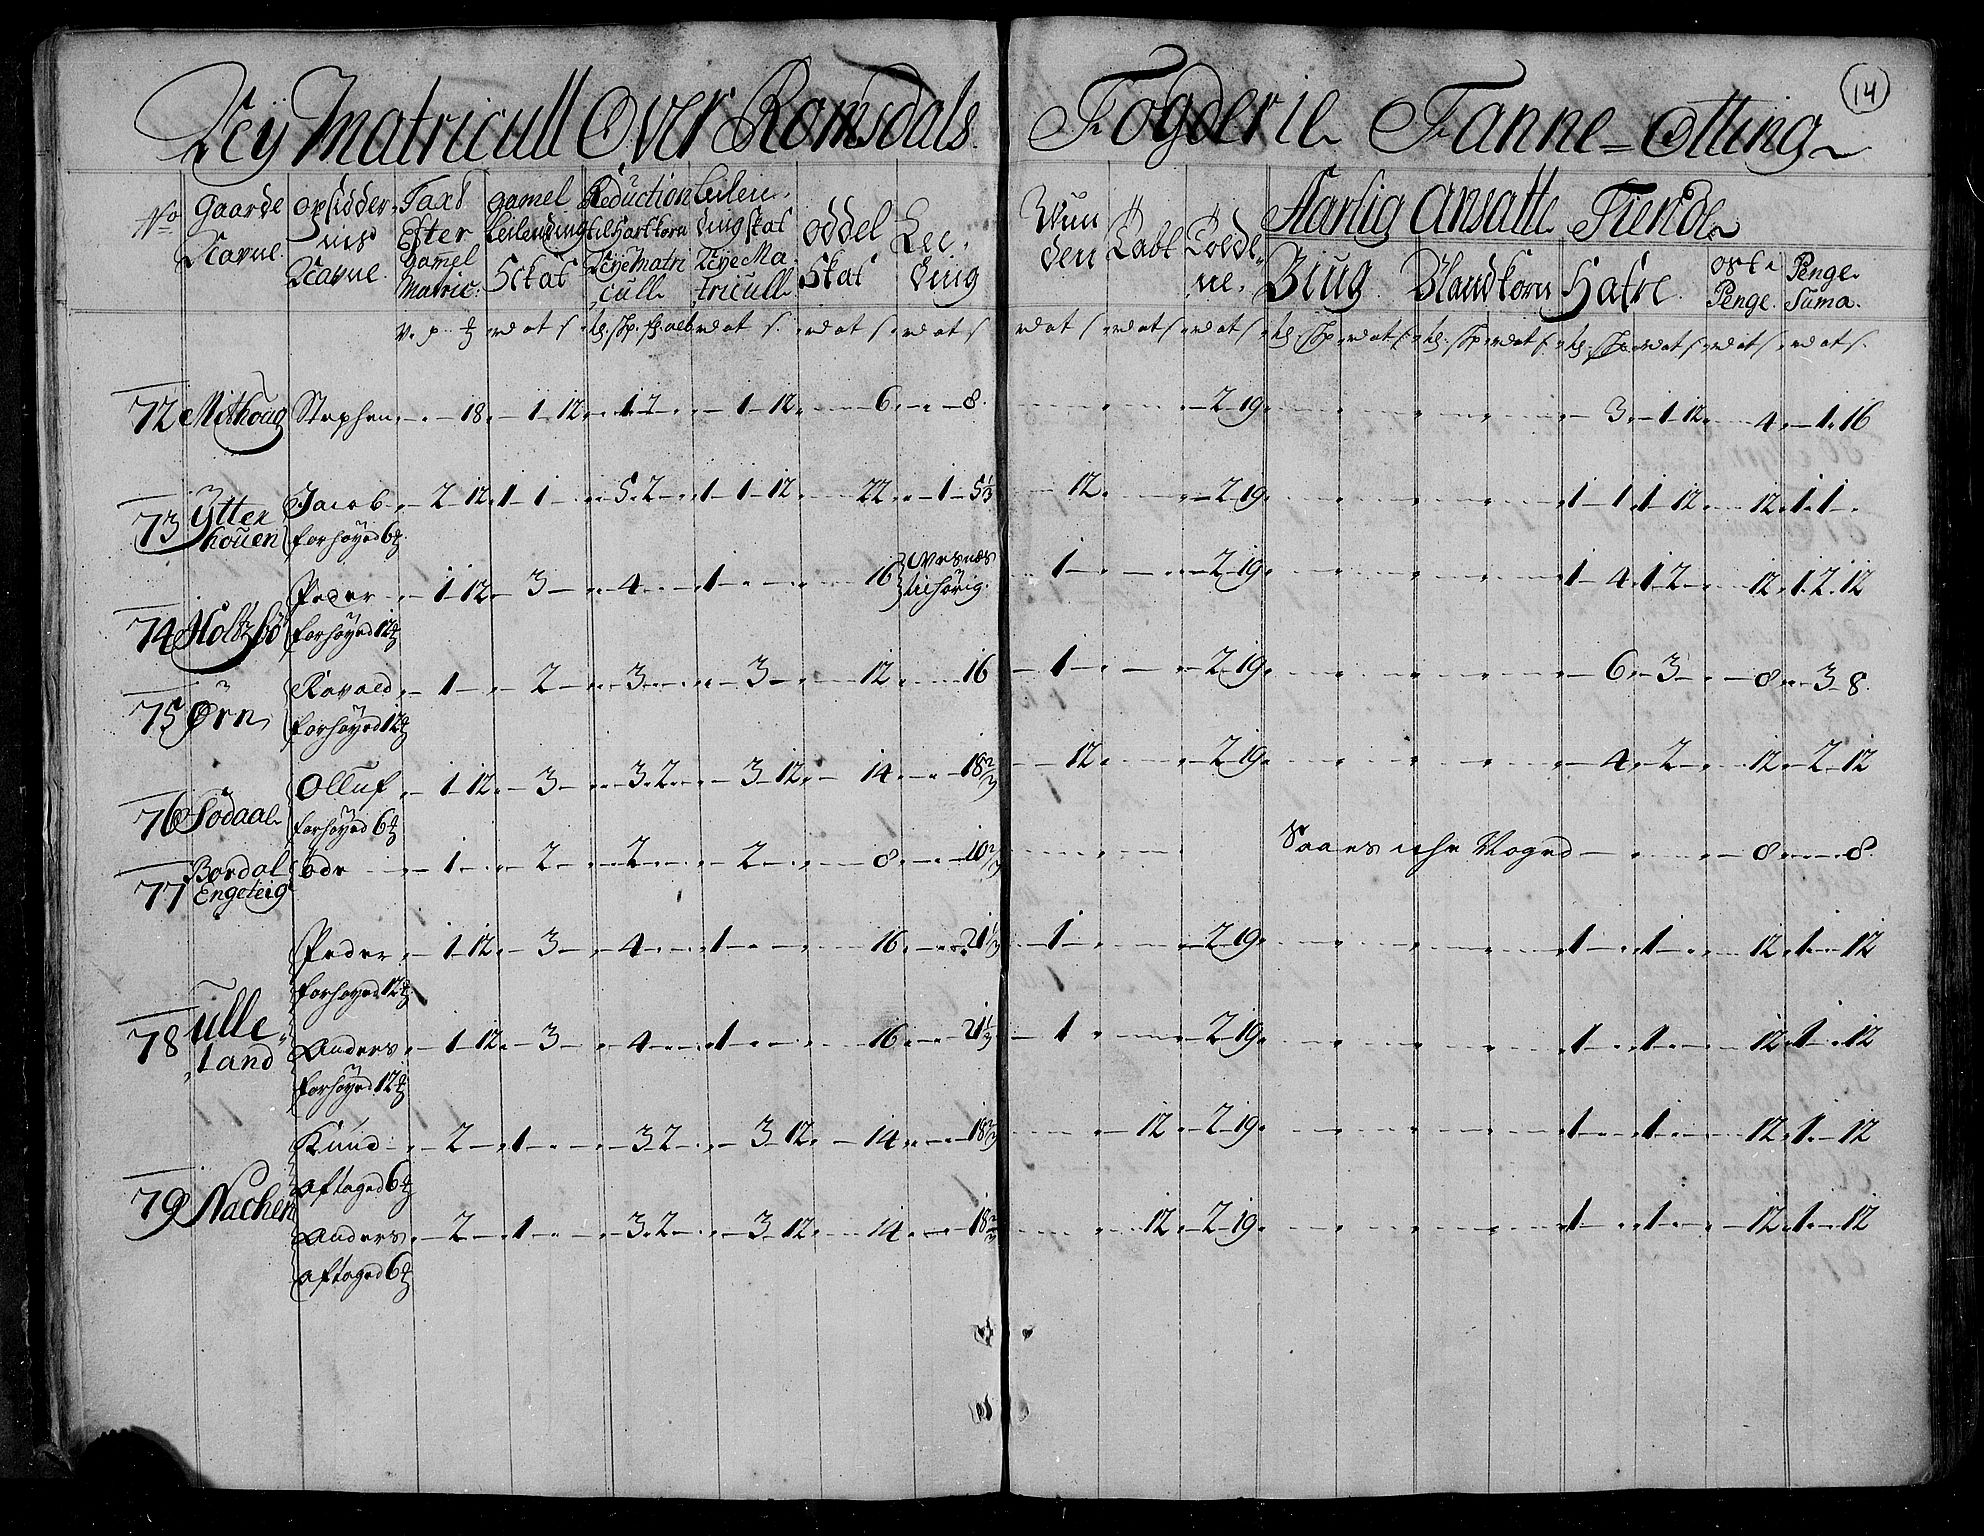 Ney Matricull Over Romsdals Fogderie Fanne-Otting
14
No Gaarde Navne opsidder nis Navne Taxt Efter gamel Matric: gamel Leilending Skat Reduction til Hartkorn Neye Matricull Leilending skat Neye Matricull oddel Skat Leeding
Aarlig Ansatte Tiende
Biug Blandkorn Hafre ost Penge Penge Suma
72 Mithoug Stephen 18 1 12 1 2 1 12 6 8 2 19 3 1 12 4 1 16
73 Ytter houen Jacob 2 12 1 1 5 2 1 1 12 22 1 5 1/3 12 2 19 1 1 1 12 12 1 1
forhøyed 6
74 Peder 1 12 3 4 1 16 tilhørig 1 2 19 1 4 1 2 12 1 2 12
forhøyed 12
75 Ørn 1 2 3 3 12 16 1 2 19 6 3 8 3 8
forhøyed 12
76 Sødaal Olluf 1 12 3 3 2 3 12 14 18 2/3 12 2 19 4 2 12 2 12
forhøyed 6
77 Bordal Engeteig öde 1 2 2 2 8 10 2/3 Saaes icke Noged 8 8
Peder 1 12 3 4 1 16 21 1/3 1 2 19 1 1 12 1 12
forhøyed 12
78 Ulle land Anders 1 12 3 4 1 16 21 1/3 1 2 19 1 1 12 1 12
forhøyed 12
Knud 2 1 3 2 3 12 14 18 2/3 12 2 19 1 1 12 1 12
aftaged 6
79 Nachen Anders 2 1 3 2 3 12 14 18 2/3 12 2 19 1 1 12 1 12
aftaged 6